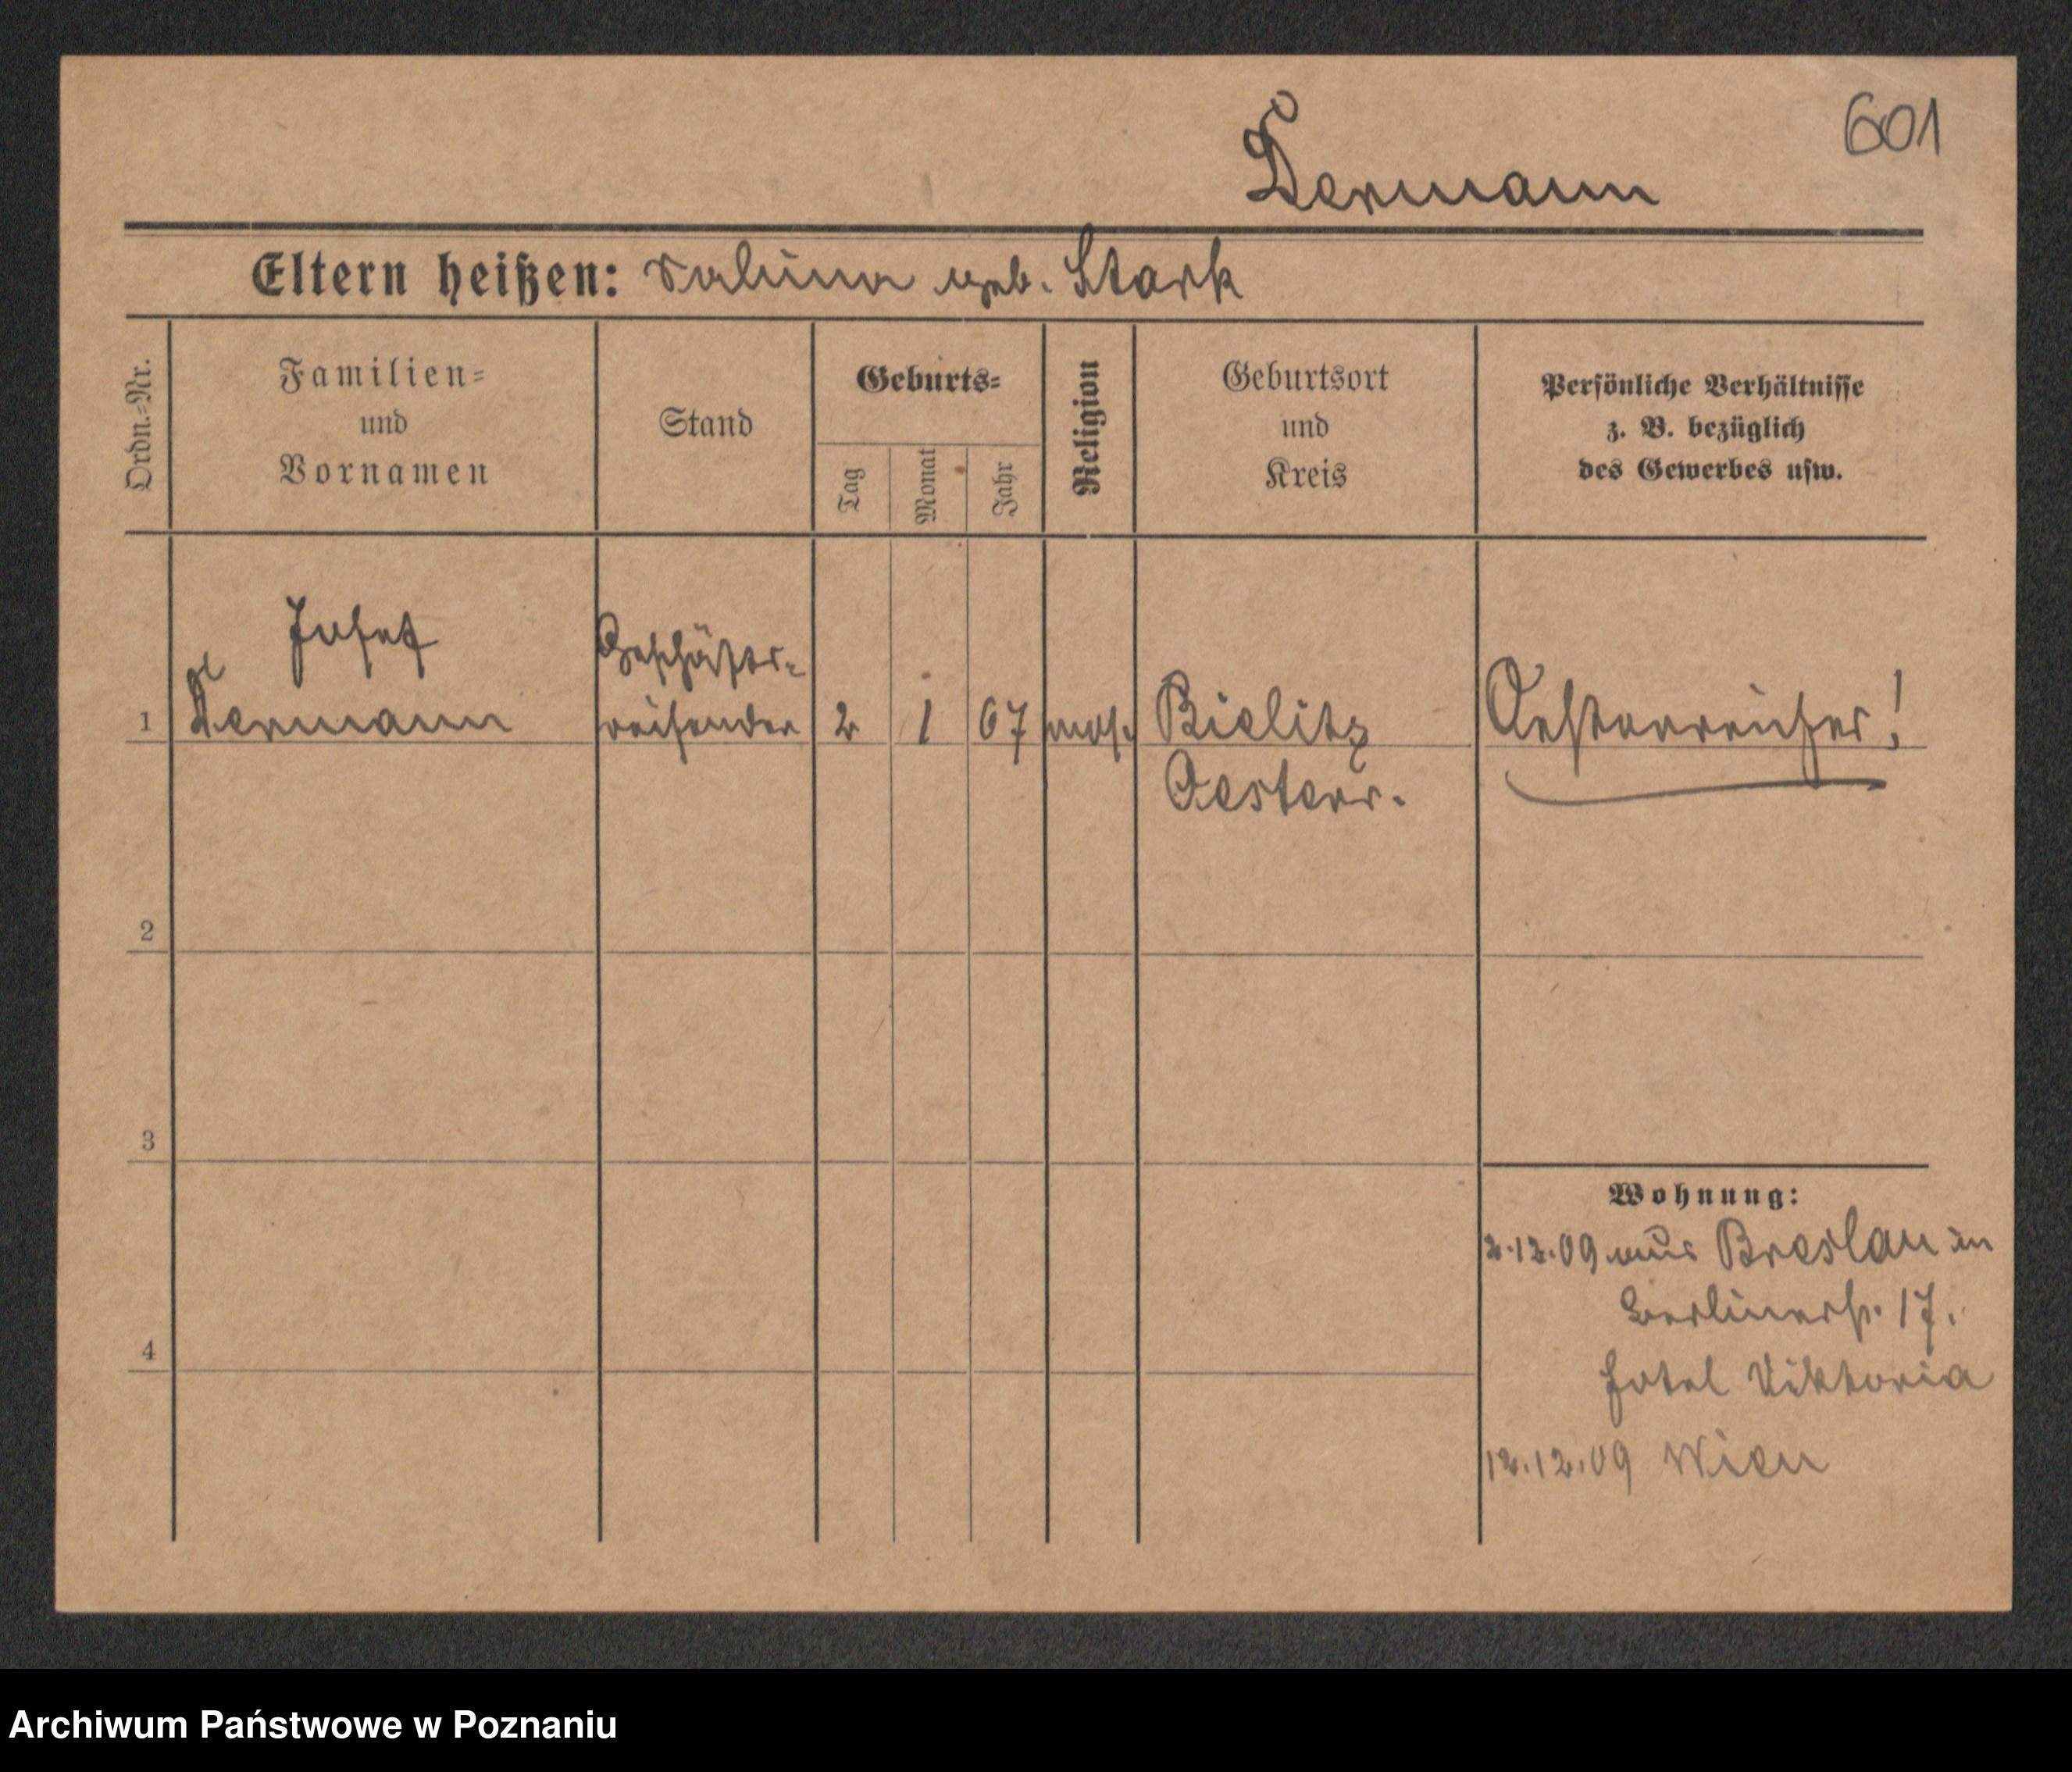 601
Dermann
Eltern heißen: geb. Stark
Ordn.-Nr.
Familien-
und
Vornamen
Stand
Geburts-
Tag
Monat
Jahr
Religion
Geburtsort
und
Kreis
Persönliche Verhältnisse
z. B. bezüglich
des Gewerbes usw.
Josef
Geschäfts-
1 Dermann reisender 2 1 67 mos. Bielitz Oesterreicher!
Oesterr.
2
3
Wohnung:
2.12.09 aus Breslau in
Berlinerstr. 17.
4
Hotel Viktoria
12.12.09 Wien
Archiwum Państwowe w Poznaniu